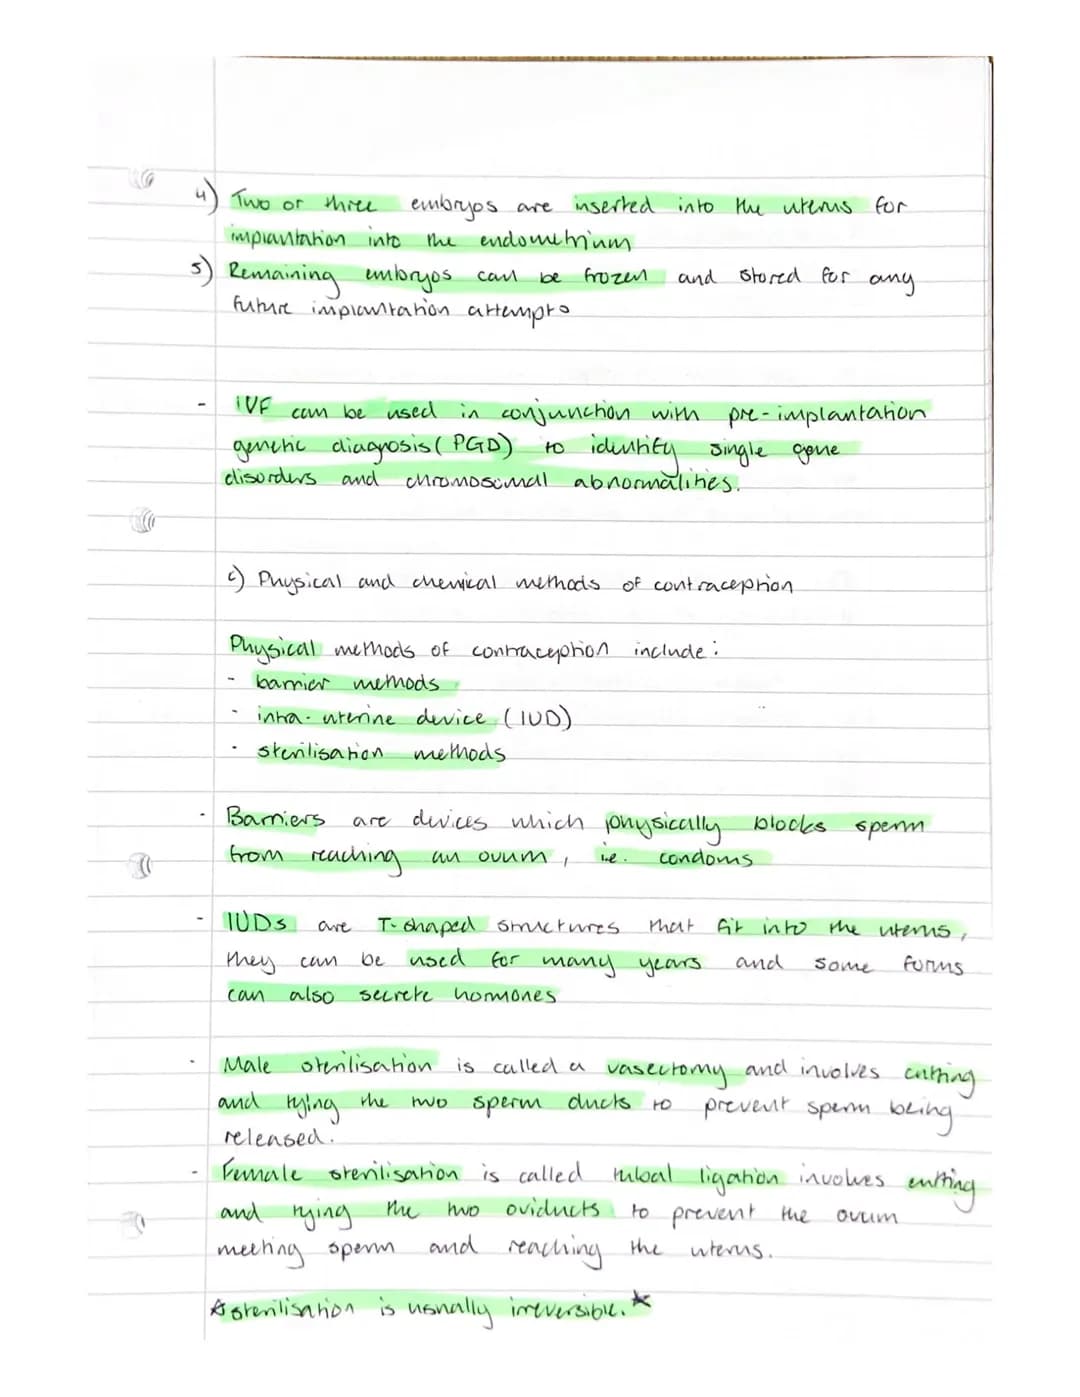 4) Two or three embryos are inserted into the uterus for
implantation into the endometrium
5) Remaining embryos can be frozen and stored for any
future implantation attempts
- IVF can be used in conjunction with pre-implantation
genetic diagnosis (PGD) to identify single gene
disorders and chromosomal abnormalities.
c) Physical and chemical methods of contraception
Physical methods of contraception include:
- barrier methods
- intra-uterine device (IUD)
- sterilisation methods
- Barriers are devices which physically blocks sperm
from reaching an ovum, i.e. condoms
- IUDs are T-shaped structures that fit into the uterus,
they can be used for many years and some forms
can also secrete hormones
- Male sterilisation is called a vasectomy and involves cutting
and tying the two sperm ducts to prevent sperm being
released.
- Female sterilisation is called tubal ligation involves cutting
and tying the two oviducts to prevent the ovum
meeting sperm and reaching the uterus.
* sterilisation is usually irreversible. *